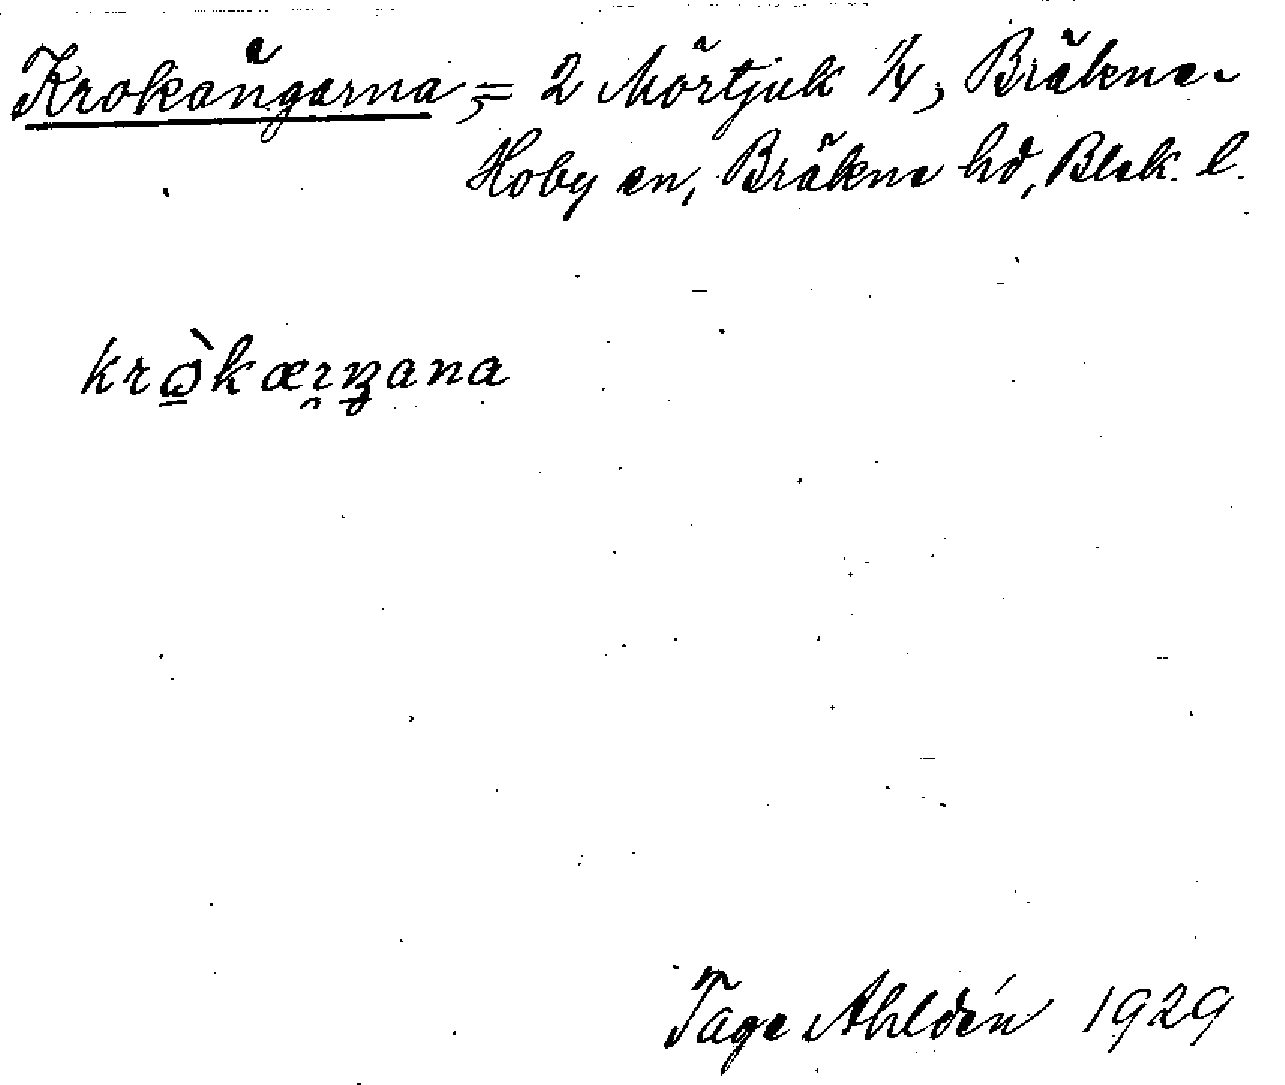 Krokängarna, = 2 Mörtjuk 1/4, Bräkne-
Hoby sn, Bräkne hd, Blek. l.
krɷ̀kærŋana
Tage Ahldén 1929